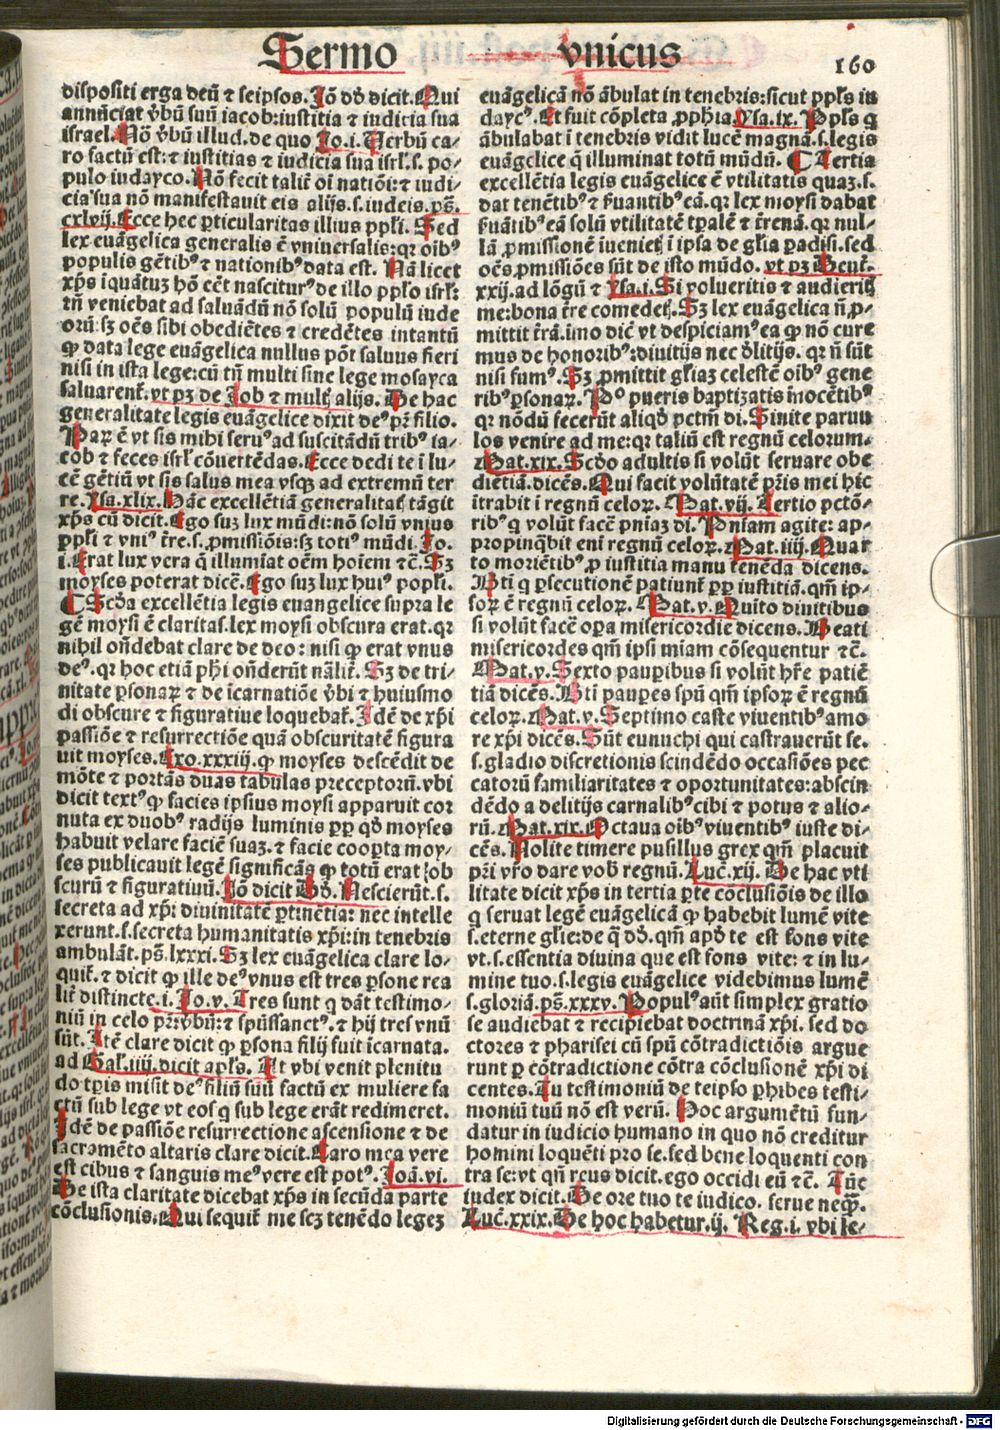 Sermo vnicus
160
dispositi erga deū ⁊ seipsos. Jō dd̄ dicit. Qui
annūciat v̄bū suū iacob: iustitia ⁊ iudicia sua
israel. Nō v̄bū illud. de quo Jo. i. Verbū ca⸗
ro factū est: ⁊ iustitias ⁊ iudicia sua isrl̄. s. po⸗
pulo iudayco. Nō fecit talit̄ oī natiōi: ⁊ iudi⸗
cia sua nō manifestauit eis alijs. s. iudeis. ps̄.
cxlvij. Ecce hec ꝑticularitas illius ppl̄i. Sed
lex euāgelica generalis ē vniuersalis: qꝛ oībꝰ
populis gētibꝰ ⁊ nationibꝰ data est. Nā licet
xp̄s iquātuꝫ hō cēt nasciturꝰ de illo pplō isrl̄:
tn̄ veniebat ad saluādū nō solū populū iude
orū: sꝫ oēs sibi obediētes ⁊ credētes intantū
ꝙ data lege euāgelica nullus pōt saluus fieri
nisi in ista lege: cū tn̄ multi sine lege mosayca
saluarent̄. vt pꝫ de Job ⁊ multꝭ alijs. De hac
generalitate legis euāgelice dixit deꝰ pr̄ filio.
Paꝝ ē vt sis mihi seruꝰ ad suscitādū tribꝰ ia⸗
cob ⁊ feces isrl̄ cōuertēdas. Ecce dedi te ī lu⸗
cē gētiū vt sis salus mea vsqꝫ ad extremū ter
re. ysa. xlix. Hāc excellētiā generalitatꝭ tāgit
xp̄s cū dicit. Ego suꝫ lux mūdi: nō solū vnius
ppl̄i ⁊ vniꝰ t̄re. s. ꝓmissiōis: sꝫ totiꝰ mūdi. Jo.
i. Erat lux vera q̄ illumīat oēm hoīem ⁊c̄. Sꝫ
moyses poterat dicē. Ego suꝫ lux huiꝰ popl̄i.
¶ Scd̄a excellētia legis euangelice supra le
gē moysi ē claritas. lex moysi obscura erat. qꝛ
nihil on̄debat clare de deo: nisi ꝙ erat vnus
deꝰ. qꝛ hoc etiā ph̄i on̄derūt nālit̄. Sꝫ de tri⸗
nitate ꝑsonaꝝ ⁊ de īcarnatiōe v̄bi ⁊ huiusmo
di obscure ⁊ figuratiue loquebat̄. Idē de xp̄i
passiōe ⁊ resurrectiōe quā obscuritatē figura
uit moyses. Exo. xxxiij. ꝙ moyses descēdit de
mōte ⁊ portās duas tabulas preceptorū. vbi
dicit textꝰ ꝙ facies ipsius moysi apparuit cor
nuta ex duobꝰ radijs luminis ꝓp qd̄ moyses
habuit velare faciē suaꝫ. ⁊ facie coopta moy⸗
ses publicauit legē significās ꝙ totū erat ob
scurū ⁊ figuratiuū. Jō dicit Dd̄. Nescierūt. s.
secreta ad xp̄i diuinitatē ꝑtinētia: nec intelle
xerunt. s. secreta humanitatis xp̄i: in tenebris
ambulāt. ps̄. lxxxi. Sꝫ lex euāgelica clare lo⸗
quit̄. ⁊ dicit ꝙ ille deꝰ vnus est tres ꝑsone rea
lit̄ distincte. i. Jo. v. Tres sunt q̄ dāt testimo⸗
niū in celo pr̄: v̄bū: ⁊ spūssanctꝰ. ⁊ hij tres vnū
sūt. Itē clare dicit ꝙ ꝑsona filij fuit īcarnata.
ad Gal̄. iiij. dicit apl̄s. At vbi venit plenitu
do tꝑis misit deꝰ filiū suū factū ex muliere fa
ctū sub lege vt eos q̄ sub lege erāt redimeret.
Idē de passiōe resurrectione ascensione ⁊ de
sacramēto altaris clare dicit. Caro mea vere
est cibus ⁊ sanguis meꝰ vere est potꝰ. Joā. vi.
De ista claritate dicebat xp̄s in secūda parte
cōclusionis. Qui sequit̄ me scꝫ tenēdo legeꝫ
euāgelicā nō ābulat in tenebris: sicut ppl̄s iu
daycꝰ. Et fuit cōpleta ꝓphīa ysa. ix. Ppl̄s q̄
ābulabat ī tenebris vidit lucē magnā. s. legis
euāgelice q̄ illuminat totū mūdū. ¶ Tertia
excellētia legis euāgelice ē vtilitatis quaꝫ. s.
dat tenētibꝰ ⁊ ẜuantibꝰ eā. qꝛ lex moysi dabat
ẜuātibꝰ eā solū vtilitatē tꝑalē ⁊ t̄renā. qꝛ nul⸗
lā ꝓmissionē iuenietꝭ ī ipsa de gl̄ia ꝑadisi. sed
oēs ꝓmissiōes sūt de isto mūdo. vt pꝫ Deut̄.
xxij. ad lōgū ⁊ ysa. i. Si volueritis ⁊ audieritꝭ
me: bona t̄re comedetꝭ. Sꝫ lex euāgelica n̄ ꝓ⸗
mittit t̄rā. imo dic̄ vt despiciamꝰ ea ꝙ nō cure
mus de honoribꝰ: diuitijs nec d̄litijs. qꝛ n̄ sūt
nisi fumꝰ. Sꝫ ꝓmittit gl̄iaꝫ celestē oībꝰ gene
ribꝰ ꝑsonaꝝ. Pꝰ pueris baptizatis īnocētibꝰ
qꝛ nōdū fecerūt aliqd̄ pctm̄ di. Sinite paruu
los venire ad me: qꝛ taliū est regnū celorum.
Mat. xix. Scd̄o adultis si volūt seruare obe
diētiā. dicēs. Qui facit volūtatē pr̄is mei hic̄
ītrabit ī regnū celoꝝ. Mat. vij. Tertio pctō⸗
ribꝰ q̄ volūt facē pn̄iaꝫ di. Pniam agite: ap⸗
propinq̄bit eni regnū celoꝝ. Mat. iiij. Quar
to moriētibꝰ ꝓ iustitia manu tenēda dicens.
Bti q̄ ꝑsecutionē patiunt̄ ꝓp iustitiā. qm̄ ip⸗
soꝝ ē regnū celoꝝ. Mat. v. Quito diuitibus
si volūt facē oꝑa misericordie dicens. Beati
misericordes qm̄ ipsi miam cōsequentur ⁊c̄.
Mat. v. Sexto pauꝑibus si volūt hr̄e patiē
tiā dicēs. Bti pauꝑes spū qm̄ ipsoꝝ ē regnū
celoꝝ. Mat. v. Septimo caste viuentibꝰ amo
re xp̄i dicēs. Sūt eunuchi qui castrauerūt se.
s. gladio discretionis scindēdo occasiōes pec
catorū familiaritates ⁊ oportunitates: abscin
dēdo a delitijs carnalibꝰ cibi ⁊ potus ⁊ alio⸗
rū. Mat. xix. Octaua oībꝰ viuentibꝰ iuste di⸗
cēs. Nolite timere pusillus grex qm̄ placuit
pr̄i vr̄o dare vob̄ regnū. Luc̄. xij. De hac vti
litate dicit xp̄s in tertia ꝑte cōclusiōis de illo
q̄ seruat legē euāgelicā ꝙ habebit lumē vite
s. eterne gl̄ie: de q̄ dd̄. qm̄ apd̄ te est fons vite
vt. s. essentia diuina que est fons vite: ⁊ in lu⸗
mine tuo. s. legis euāgelice videbimus lumē
s. gloriā. ps̄. xxxv. Populꝰ aūt simplex gratio
se audiebat ⁊ recipiebat doctrinā xp̄i. sed do
ctores ⁊ pharisei cū spū cōtradictiōis argue
runt ꝑ cōtradictione cōtra cōclusionē xp̄i di
centes. Tu testimoniū de teipso ꝑhibes testi⸗
moniū tuū nō est verū. Hoc argumētū fun⸗
datur in iudicio humano in quo nō creditur
homini loquēti pro se. sed bene loquenti con
tra se: vt qn̄ reus dicit. ego occidi eū ⁊c̄. Tūc
iudex dicit. De ore tuo te iudico. serue neqꝫ.
Luc̄. xxix. De hoc habetur. ij. Reg. i. vbi le⸗
Digitalisierung gefördert durch die Deutsche Forschungsgemeinschaft - DFG